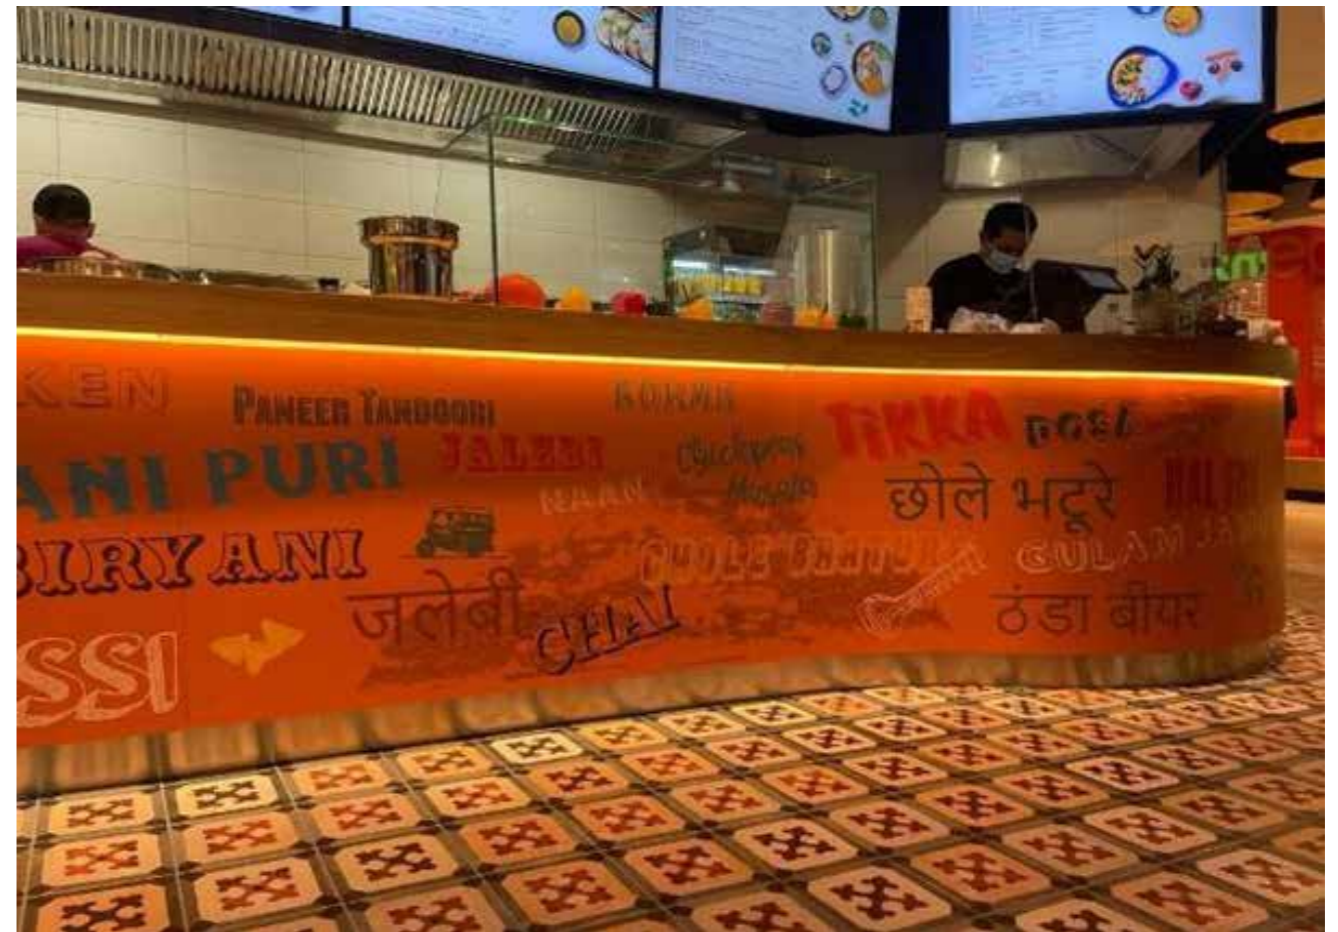 KEN
PANEER TANDOORI
KORMA
TIKKA
DOSA
ANI PURI
JALEBI
Chickpeas Masala
NAAN
छोले भटूरे
BIRYANI
CHOLE BHATURA
GULAM JA
जलेबी
CHAI
ठंडा बीयर
SSI